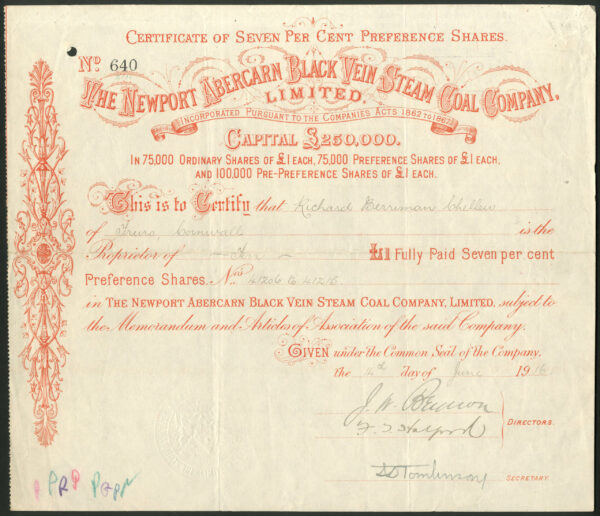 CERTIFICATE OF SEVEN PER CENT PREFERENCE SHARES.
No 640
THE NEWPORT ABERCARN BLACK VEIN STEAM COAL COMPANY,
LIMITED.
INCORPORATED PURSUANT TO THE COMPANIES ACTS 1862 TO 1867
CAPITAL £250,000.
IN 75,000 ORDINARY SHARES OF £1 EACH, 75,000 PREFERENCE SHARES OF £1 EACH,
AND 100,000 PRE-PREFERENCE SHARES OF £1 EACH.
This is to Certify that Richard Berriman Chellew
of Truro, Cornwall is the
Proprietor of Ten £1 Fully Paid Seven per cent
Preference Shares, Nos 41206 to 41215
in THE NEWPORT ABERCARN BLACK VEIN STEAM COAL COMPANY, LIMITED, subject to
the Memorandum and Articles of Association of the said Company.
GIVEN under the Common Seal of the Company.
the 14th day of June 1916
DIRECTORS.
Tomlinson
SECRETARY.